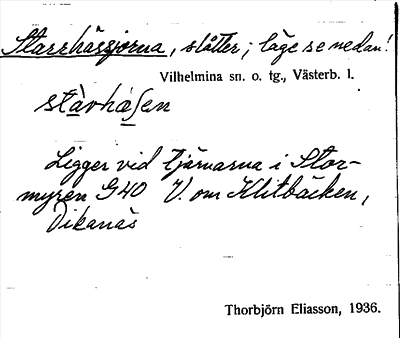 Starrhässjorna, slåtter; läge se nedan!
Vilhelmina sn. o. tg., Västerb. l.
Ligger vid tjärnarna i Stor-
myren G40 V. om Klitbäcken,
Dikanäs
Thorbjörn Eliasson, 1936.